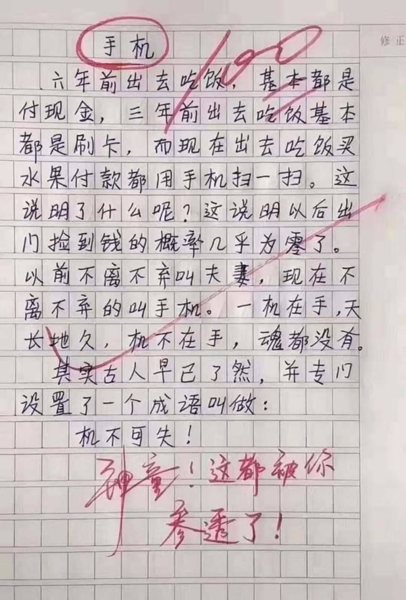 修正
手机
100
六年前出去吃饭，基本都是
付现金，三年前出去吃饭基本
都是刷卡，而现在出去吃饭买
水果付款都用手机扫一扫。这
说明了什么呢？这说明以后出
门捡到钱的概率几乎为零了。
以前不离不弃叫夫妻，现在不
离不弃的叫手机。一机在手，天
长地久，机不在手，魂都没有。
其实古人早已了然，并专门
设置了一个成语叫做：
机不可失！
神童！这都被你
参透了！